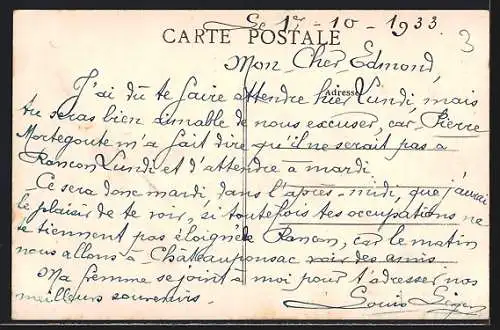 Le 17-10-1933.
3
CARTE POSTALE
Mon Cher Edmond,
Adresse
J'ai dû te faire attendre hier Lundi, mais
tu seras bien aimable de nous excuser, car Pierre
Mortegoute m'a fait dire qu'il ne serait pas à
Rancon Lundi et d'attendre à mardi.
Ce sera donc mardi, dans l'après-midi, que j'aurai
le plaisir de te voir, si toutefois tes occupations ne
te tiennent pas éloigné de Rancon, car le matin
nous allons à Châteauponsac voir des amis
Ma femme se joint à moi pour t'adresser nos
meilleurs souvenirs.
Louis